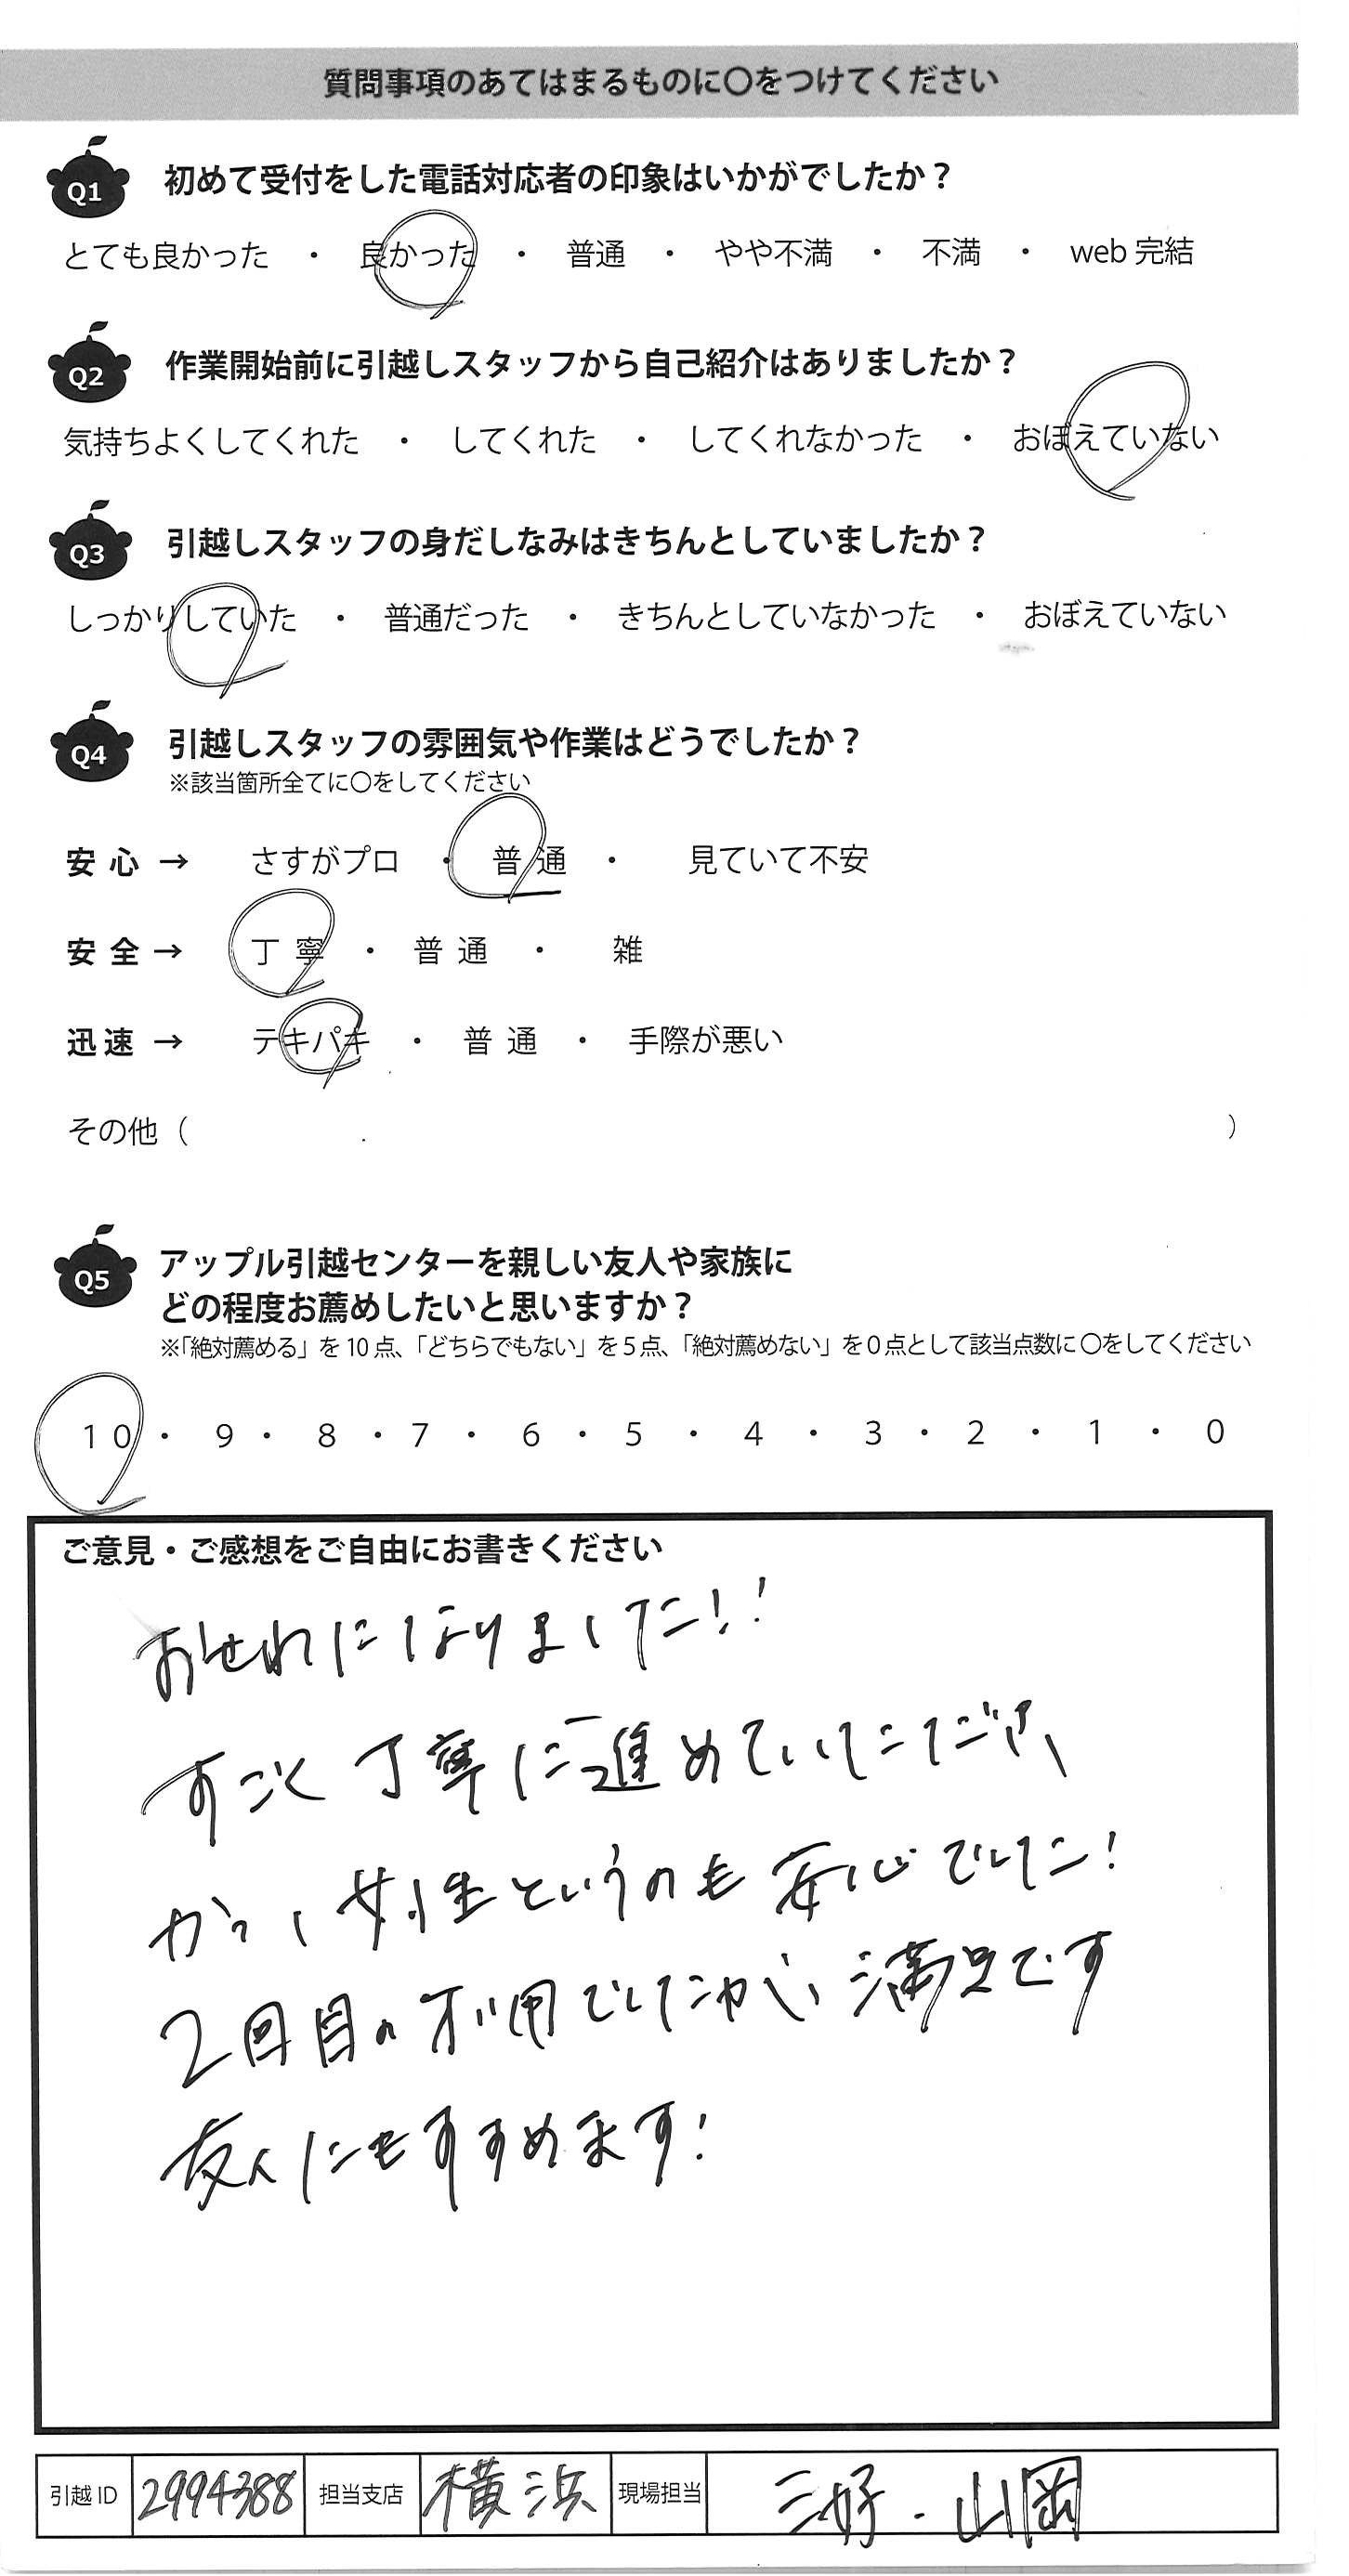 質問事項のあてはまるものに〇をつけてください
Q1 初めて受付をした電話対応者の印象はいかがでしたか？
とても良かった ・ 良かった ・ 普通 ・ やや不満 ・ 不満 ・ web 完結
Q2 作業開始前に引越しスタッフから自己紹介はありましたか？
気持ちよくしてくれた ・ してくれた ・ してくれなかった ・ おぼえていない
Q3 引越しスタッフの身だしなみはきちんとしていましたか？
しっかりしていた ・ 普通だった ・ きちんとしていなかった ・ おぼえていない
Q4 引越しスタッフの雰囲気や作業はどうでしたか？
※該当箇所全てに〇をしてください
安心 → さすがプロ ・ 普通 ・ 見ていて不安
安全 → 丁寧 ・ 普通 ・ 雑
迅速 → テキパキ ・ 普通 ・ 手際が悪い
その他（ ）
Q5 アップル引越センターを親しい友人や家族に
どの程度お薦めしたいと思いますか？
※「絶対薦める」を10点、「どちらでもない」を5点、「絶対薦めない」を0点として該当点数に〇をしてください
10 ・ 9 ・ 8 ・ 7 ・ 6 ・ 5 ・ 4 ・ 3 ・ 2 ・ 1 ・ 0
ご意見・ご感想をご自由にお書きください
おせわになりました！！
すごく丁寧に進めていただき、
かつ、女性というのも安心でした！
2回目の利用でしたが、満足です
友人にもすすめます！
引越ID 2994388 担当支店 横浜 現場担当 三好・山岡